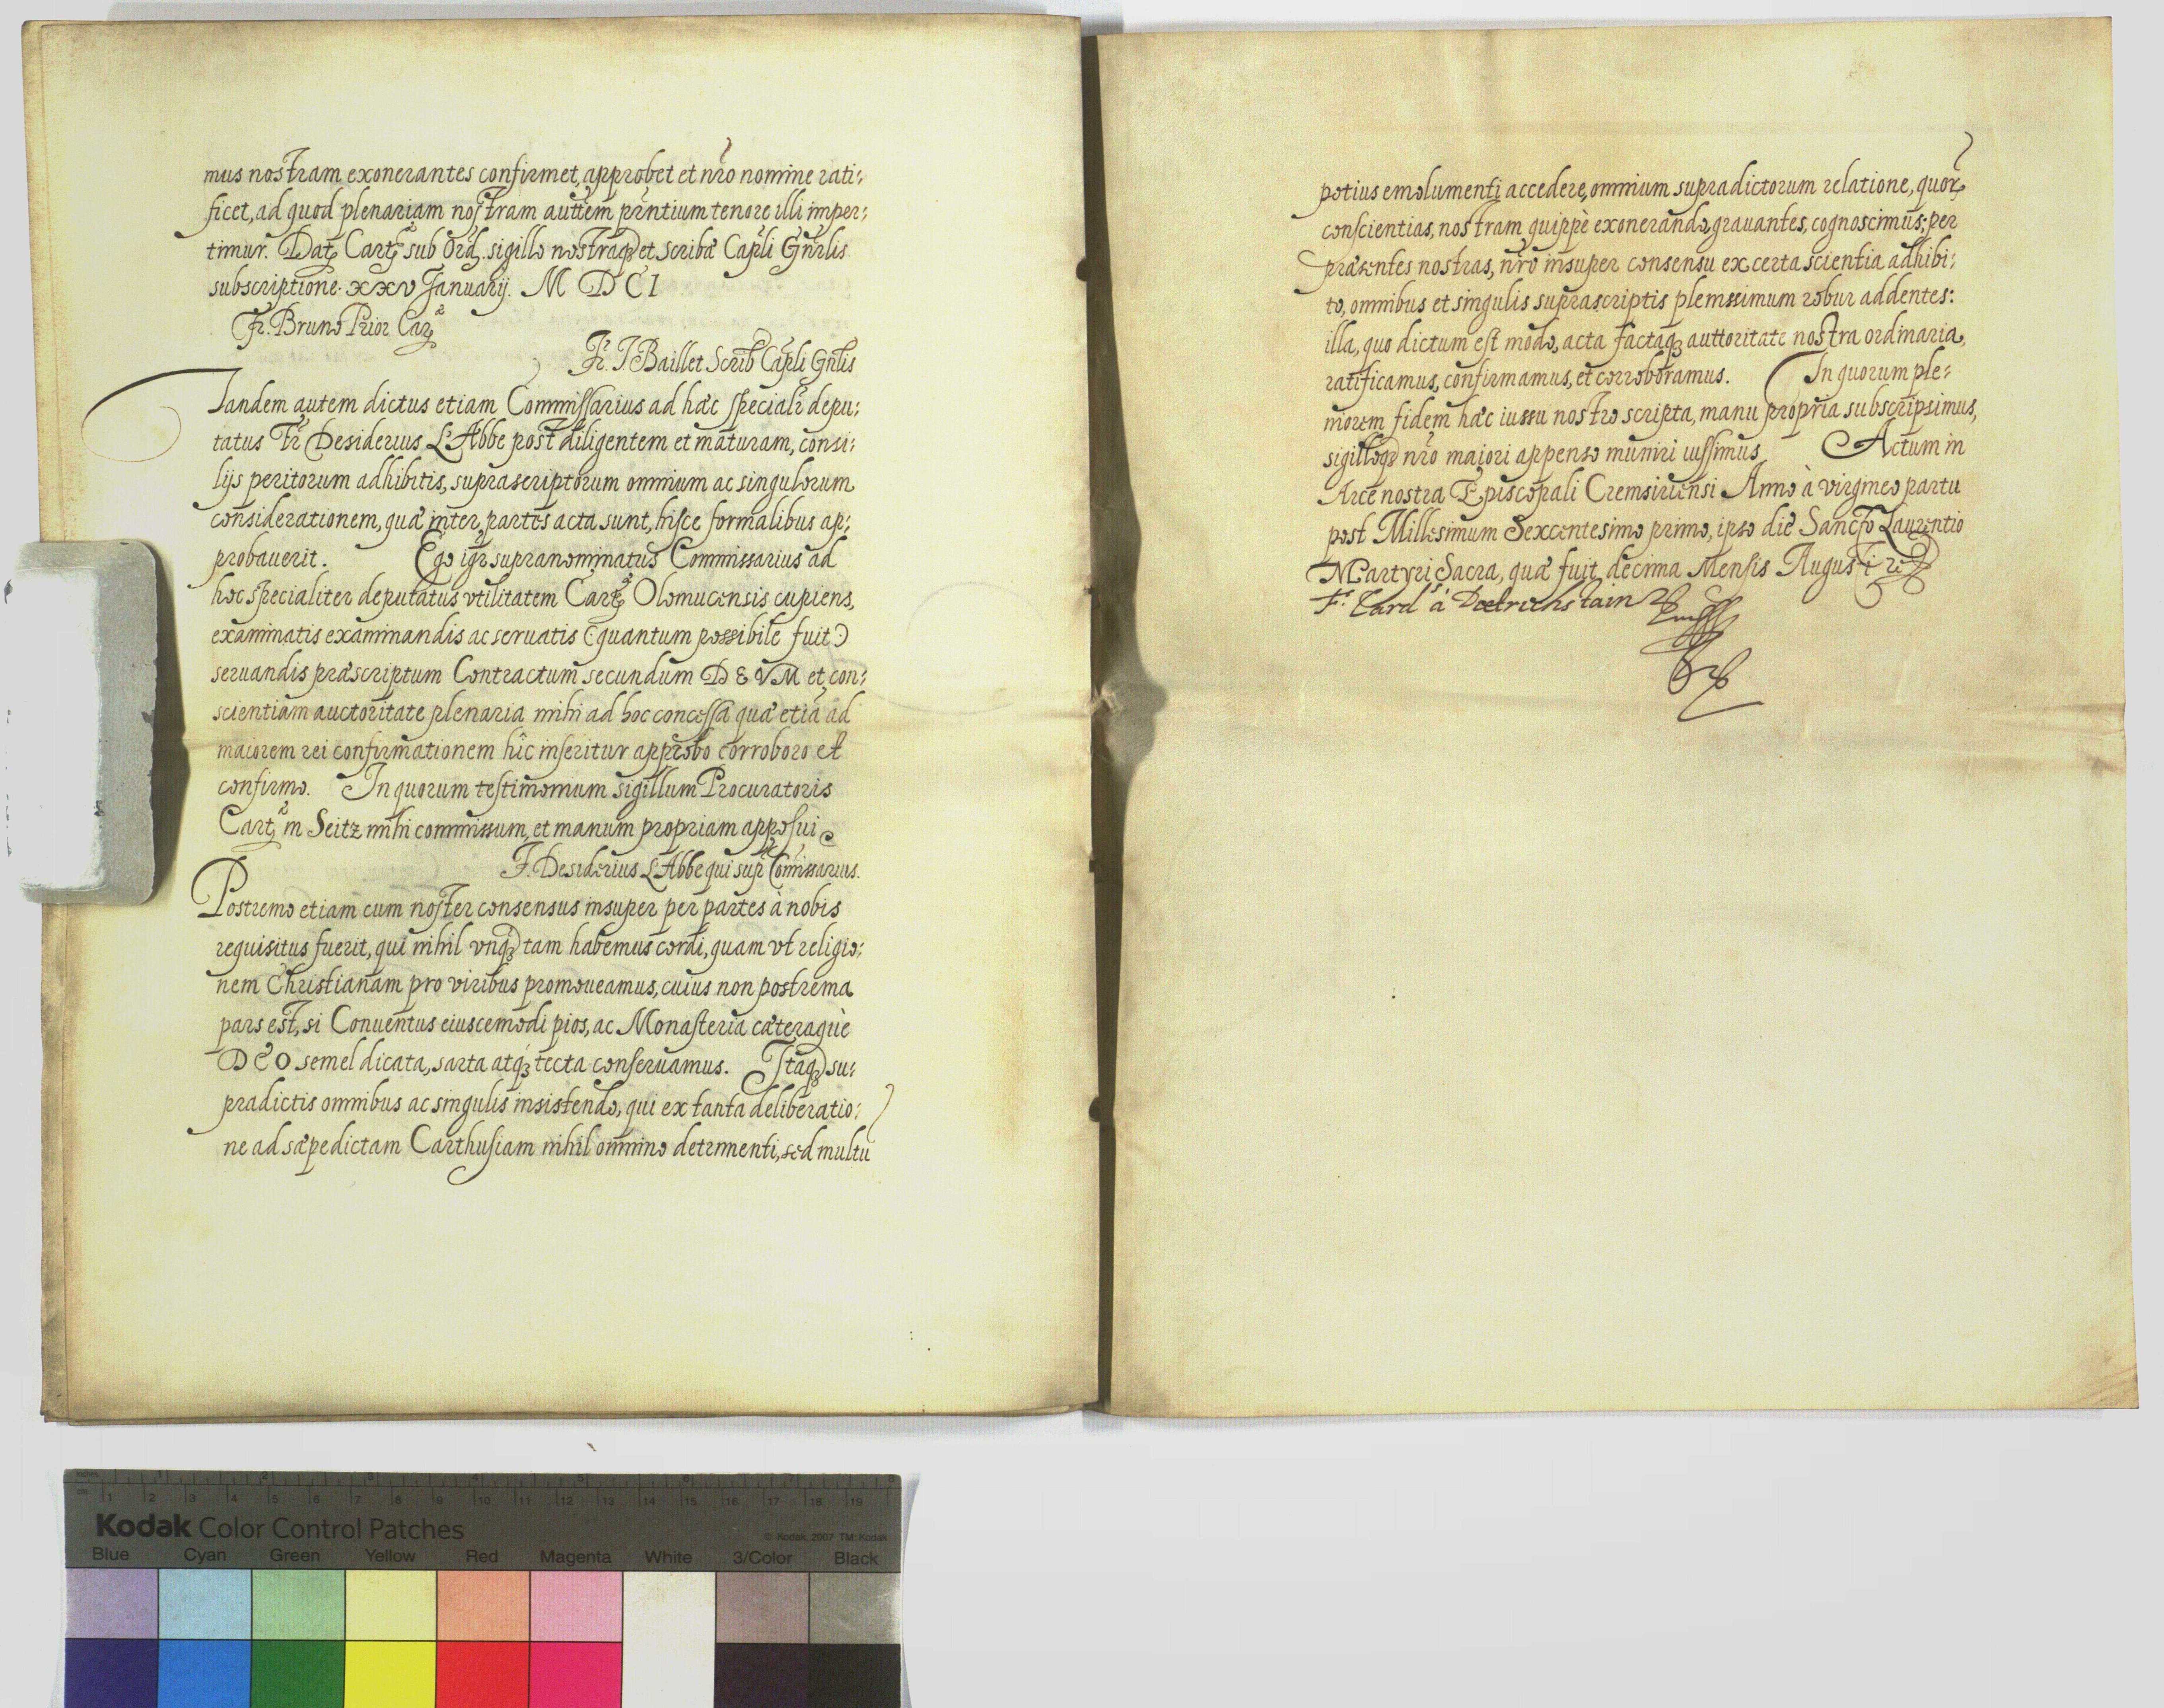 mus nostram exonerantes confirmet, approbet et nr̃o nomine rati:
ficet, ad quod plenariam nostram auttem pr̃ntium tenore illi imper:
timur. Dat Cart sub Ord. sigillo nostraq₃ et Scribæ Cap̃li Gn̄rlis
subscriptione. xxv Januarij. M D C I
Fr. Bruno Prior Car
Fr. J Baillet Scrib Cap̃li Gn̄lis
Tandem autem dictus etiam Commissarius ad hæc speciali depu:
tatus Fr Desiderius L'Abbe post diligentem et maturam, consi:
lijs peritorum adhibitis, suprascriptorum omnium ac singulorum
considerationem, quæ inter partes acta sunt, hisce formalibus ap:
probauerit. Ego igr̃ supranominatus Commissarius ad
hoc specialiter deputatus vtilitatem Cart Olomucensis cupiens,
examinatis examinandis ac seruatis (: quantum possibile fuit :)
seruandis præscriptum Contractum secundum DEVM et con:
scientiam auctoritate plenaria mihi ad hoc concessa quæ etiã ad
maiorem rei confirmationem hîc inseritur approbo corroboro et
confirmo. In quorum testimonium sigillum Procuratoris
Cart in Seitz mihi commissum, et manum propriam apposui
F. Desiderius L'Abbe qui supr Comissarius.
Postremo etiam cum noster consensus insuper per partes à nobis
requisitus fuerit, qui nihil vnq₃ tam habemus cordi, quam vt religio:
nem Christianam pro viribus promoueamus, cuius non postrema
pars est, si Conuentus eiuscemodi pios, ac Monasteria cæteraquè
DEO semel dicata, sarta atq₃ tecta conseruamus. Itaq₃ su:
pradictis omnibus ac singulis insistendo, qui ex tanta deliberatio:
ne ad sæpedictam Carthusiam nihil omnino detrimenti, sed multu
potius emolumenti accedere, omnium supradictorum relatione, quor
conscientias, nostram quippè exonerando, grauantes, cognoscimus; per
præsentes nostras, nr̃o insuper consensu ex certa scientia adhibi:
to, omnibus et singulis suprascriptis plenissimum robur addentes:
illa, quo dictum est modo, acta factaq₃ auttoritate nostra ordinaria,
ratificamus, confirmamus, et corroboramus. In quorum ple:
niorem fidem hæc iussu nostro scripta, manu propria subscripsimus,
sigilloq₃ nr̃o maiori appenso muniri iussimus. Actum in
Arce nostra Episcopali Cremsiriensi Anno à virgineo partu
post Millesimum Sexcentesimo primo, ipso diè Sancto Laurentio
Martyri Sacra, quæ fuit decima Mensis Augusti
F. Card. à Dietrichstain
Kodak Color Control Patches
© Kodak, 2007 TM: Kodak
Blue Cyan Green Yellow Red Magenta White 3/Color Black